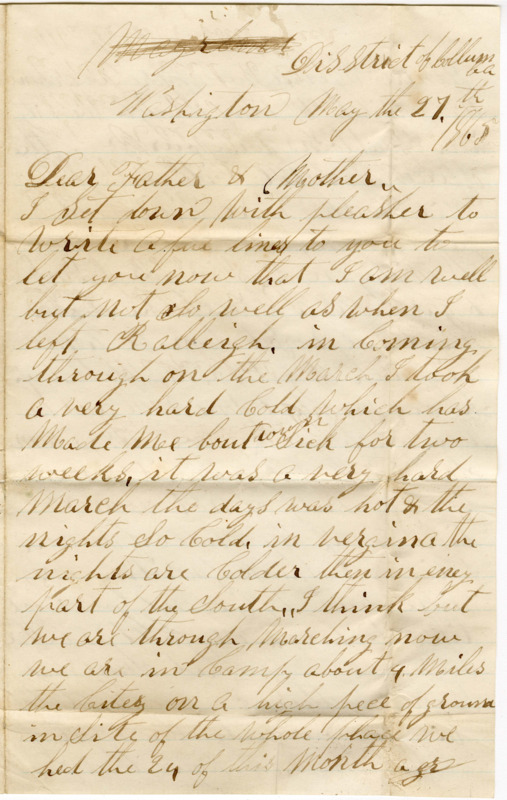 Disstrict of Collum
ba
Washington May the 27th
186
Dear Father & Mother
I set down with pleasher to
write a fue lines to you to
let you now that I am well
but not so well as when I
left Ralleigh. in Coming
through on the March I took
a very hard Cold which has
Made Mee bout Sick for two
weeks. it was a very hard
March the days was hot & the
nights So Cold in verginna the
nights are Colder then in eney
part of the South, I think but
we are through Marching now
we are in Camp about 4 Miles
the Citey on a high pece of ground
in site of the whole place we
hed the 24 of this Month a gr